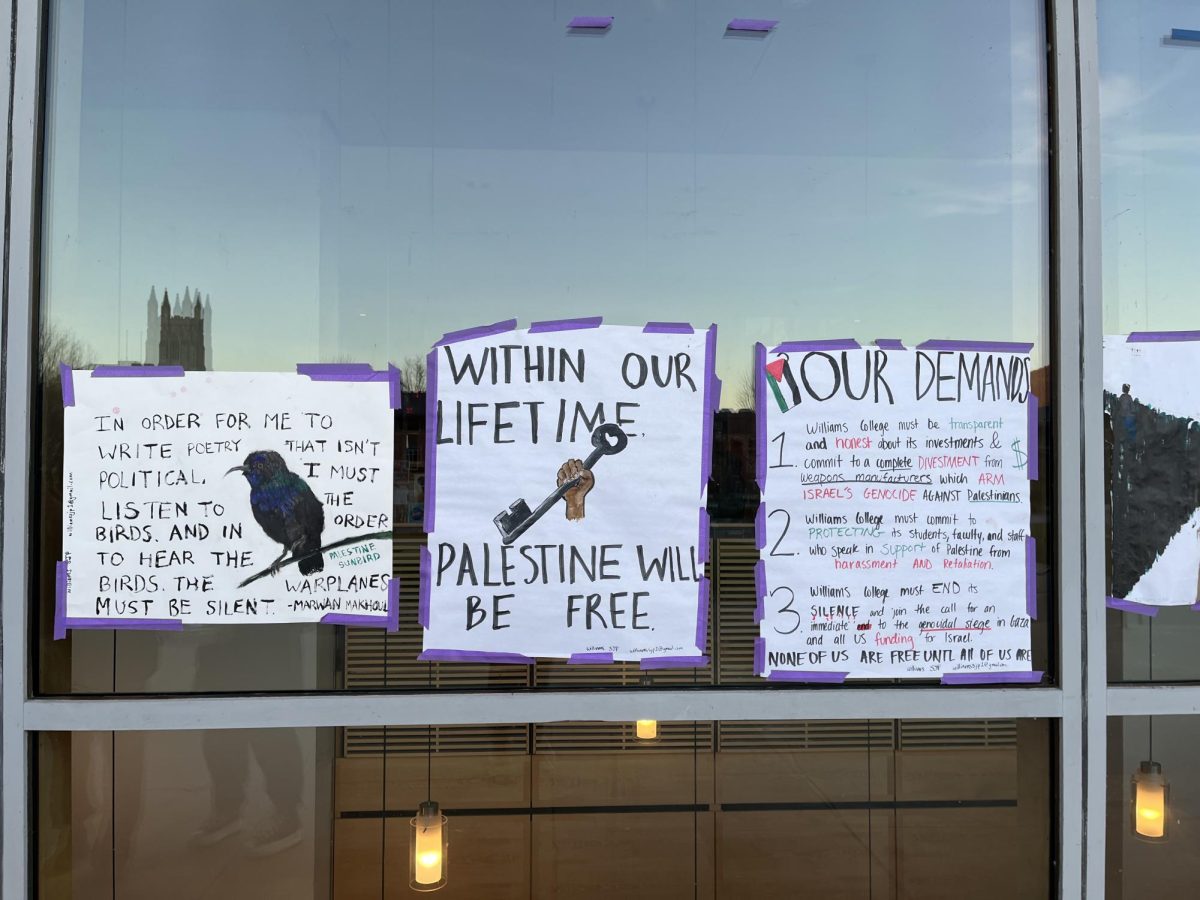 IN ORDER FOR ME TO
WRITE POETRY THAT ISN'T
POLITICAL, I MUST
LISTEN TO THE
BIRDS. AND IN ORDER
TO HEAR THE
BIRDS. THE WARPLANES
MUST BE SILENT. -MARWAN MAKHOUL
PALESTINE
SUNBIRD
WITHIN OUR
LIFETIME,
PALESTINE WILL
BE FREE.
Williams SJP
OUR DEMANDS
1. Williams College must be transparent
and honest about its investments &
commit to a complete DIVESTMENT from $
weapons manufacturers which ARM
ISRAEL'S GENOCIDE AGAINST Palestinians.
2. Williams College must commit to
PROTECTING its students, faculty, and staff
who speak in support of Palestine from
harassment AND Retaliation.
3. Williams College must END its
SILENCE and join the call for an
immediate end to the genocidal siege in Gaza
and all US funding for Israel.
NONE OF US ARE FREE UNTIL All OF US ARE
Williams SJP